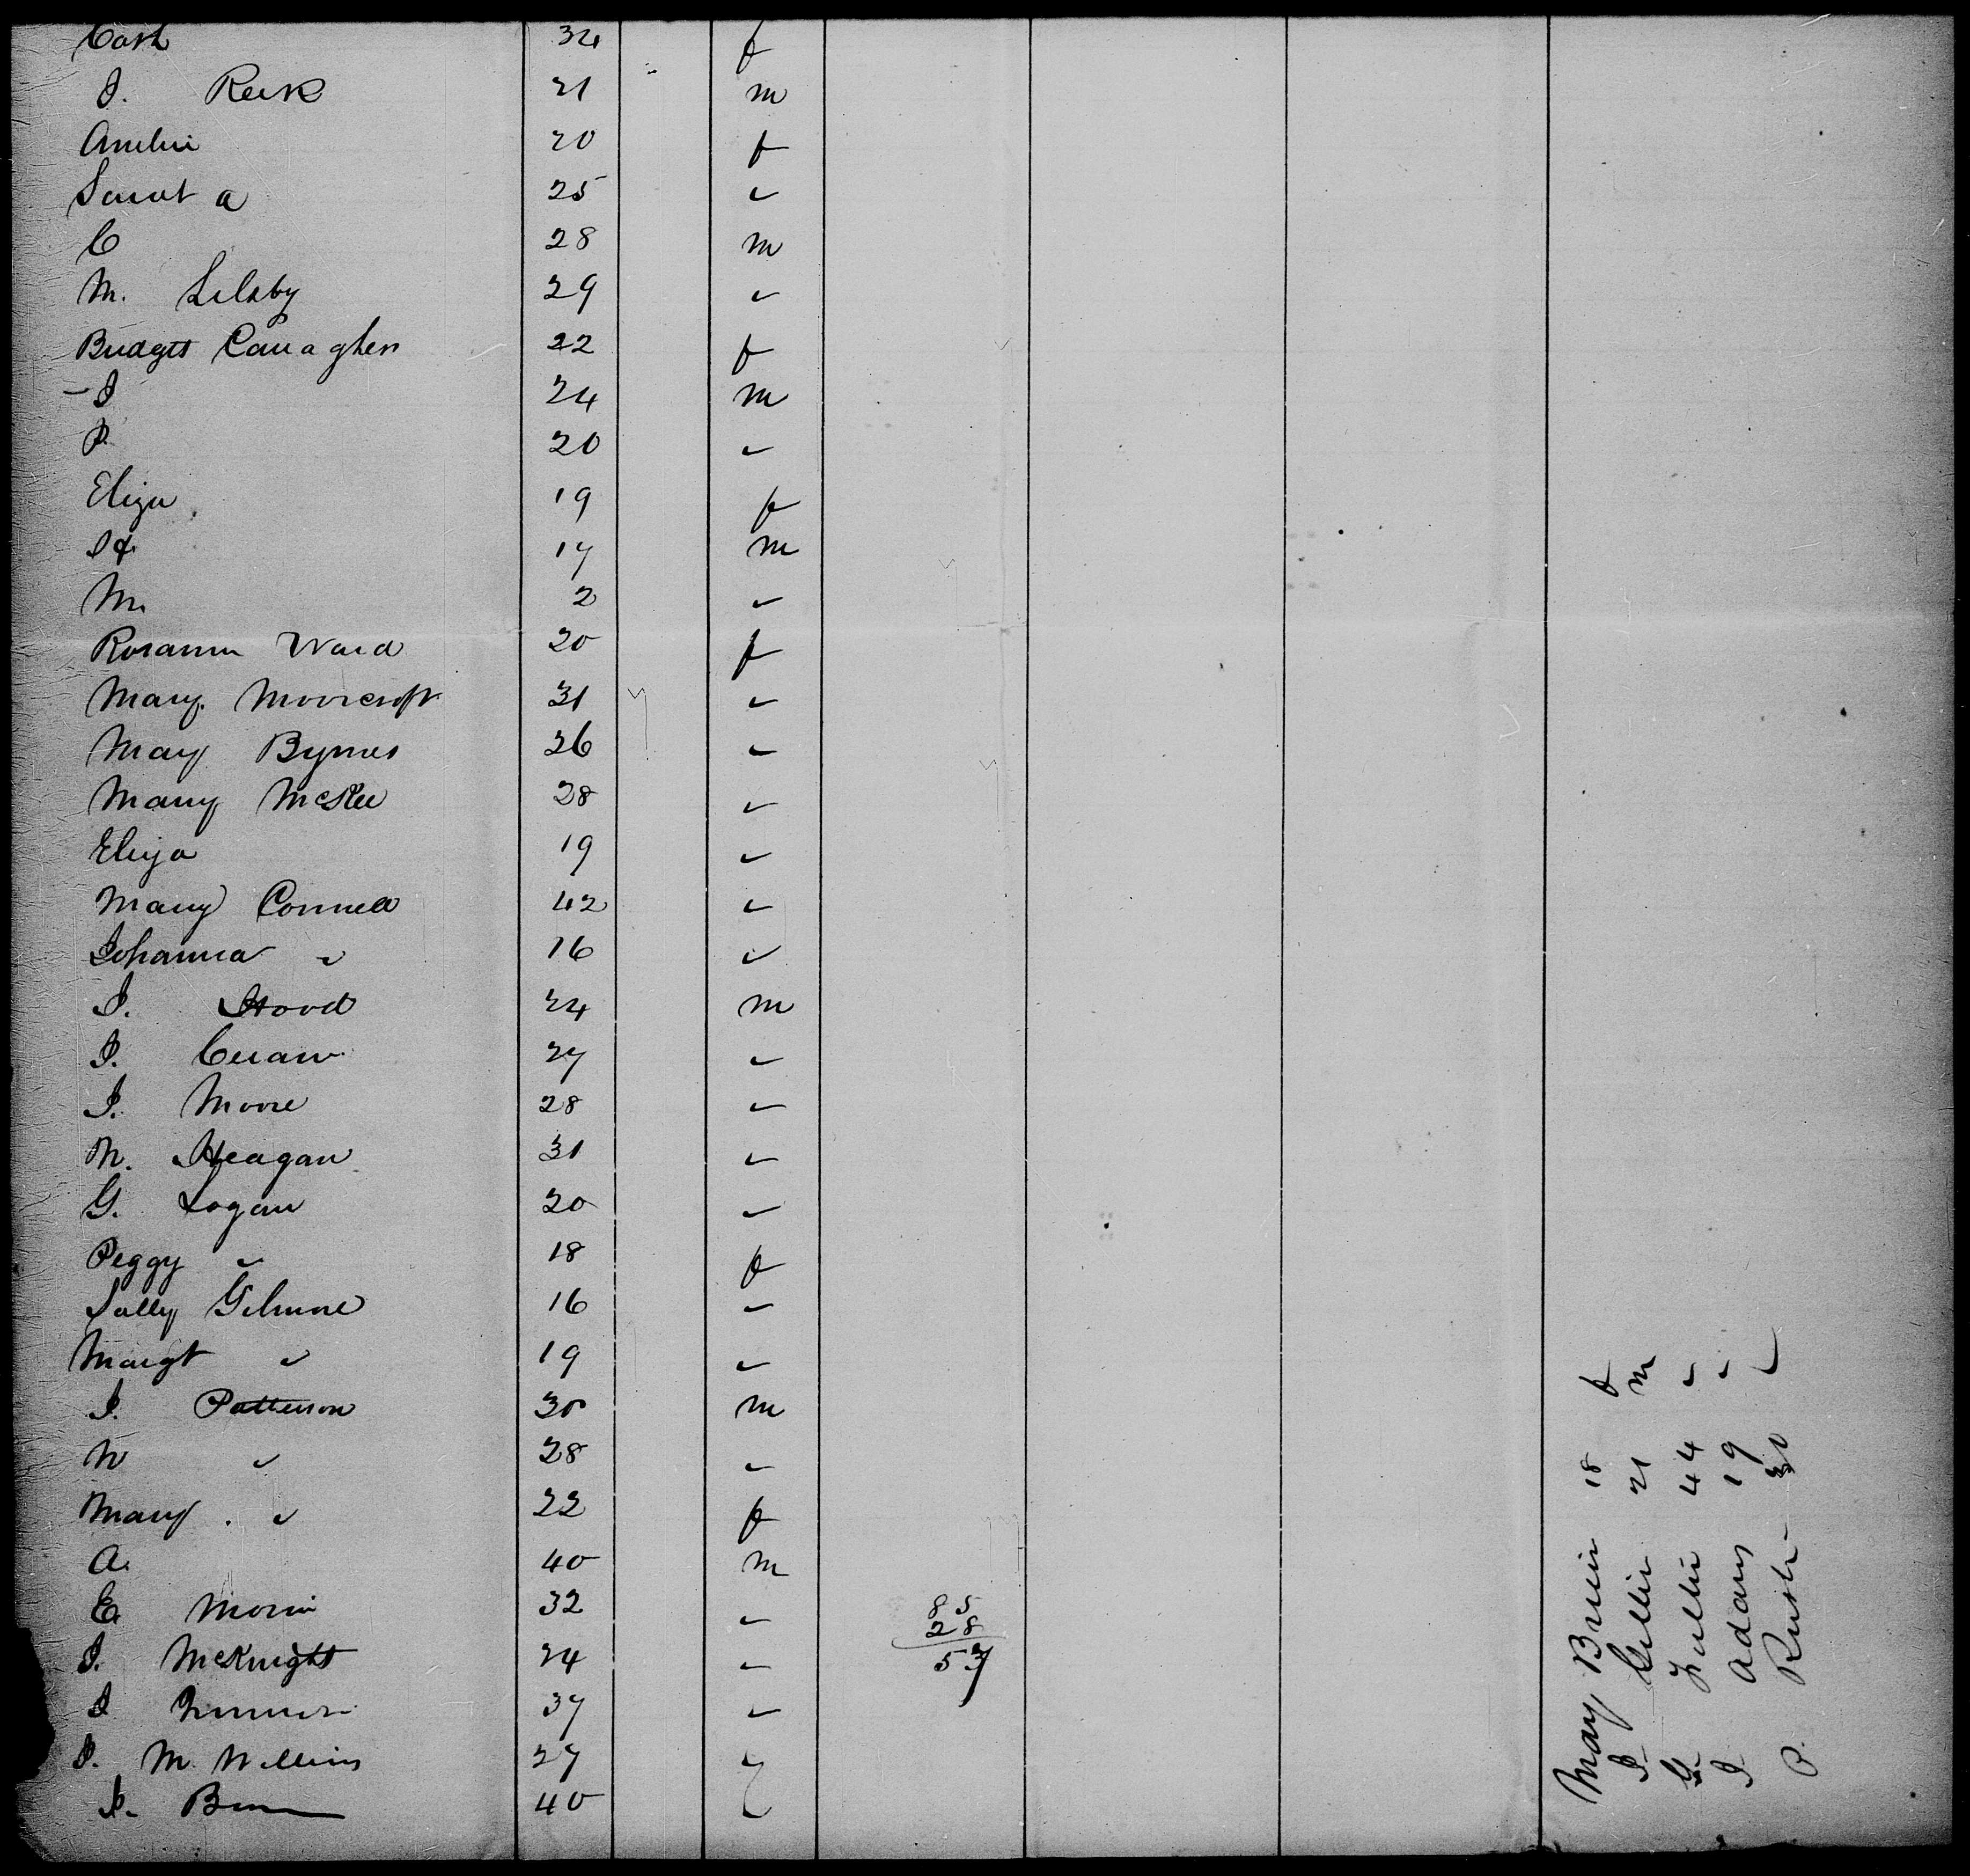 Cath 34 f
J. Reek 21 m
Amelia 20 f
Sarah a 25 "
C 28 m
M. Silsby 29 "
Bridget Canaghen 22 f
- J 24 m
P. 20 "
Eliza 19 f
17 m
M. 2 "
Rosanna Ward 20 f
Mary Moorcroft 31 "
Mary Byrnes 26 "
Mary McKee 28 "
Eliza 19 "
Mary Connell 42 "
Johanna " 16 "
J. Hood 24 m
J. Curan 27 "
J. Moore 28 "
M. Heagan 31 "
G. Logan 20 "
Peggy " 18 f
Sally Gilmore 16 "
Margt " 19 "
J. Patterson 30 m
W " 28 "
Mary " 22 f
A. 40 m
E. Morin 32 "
J. McKnight 24 "
J 37 "
J. M. Williams 27 "
J. 40 "
85
28
57
Mary Brien 18 f
J. 21 m
G. 44 "
J. Adams 19 "
P. 30 "